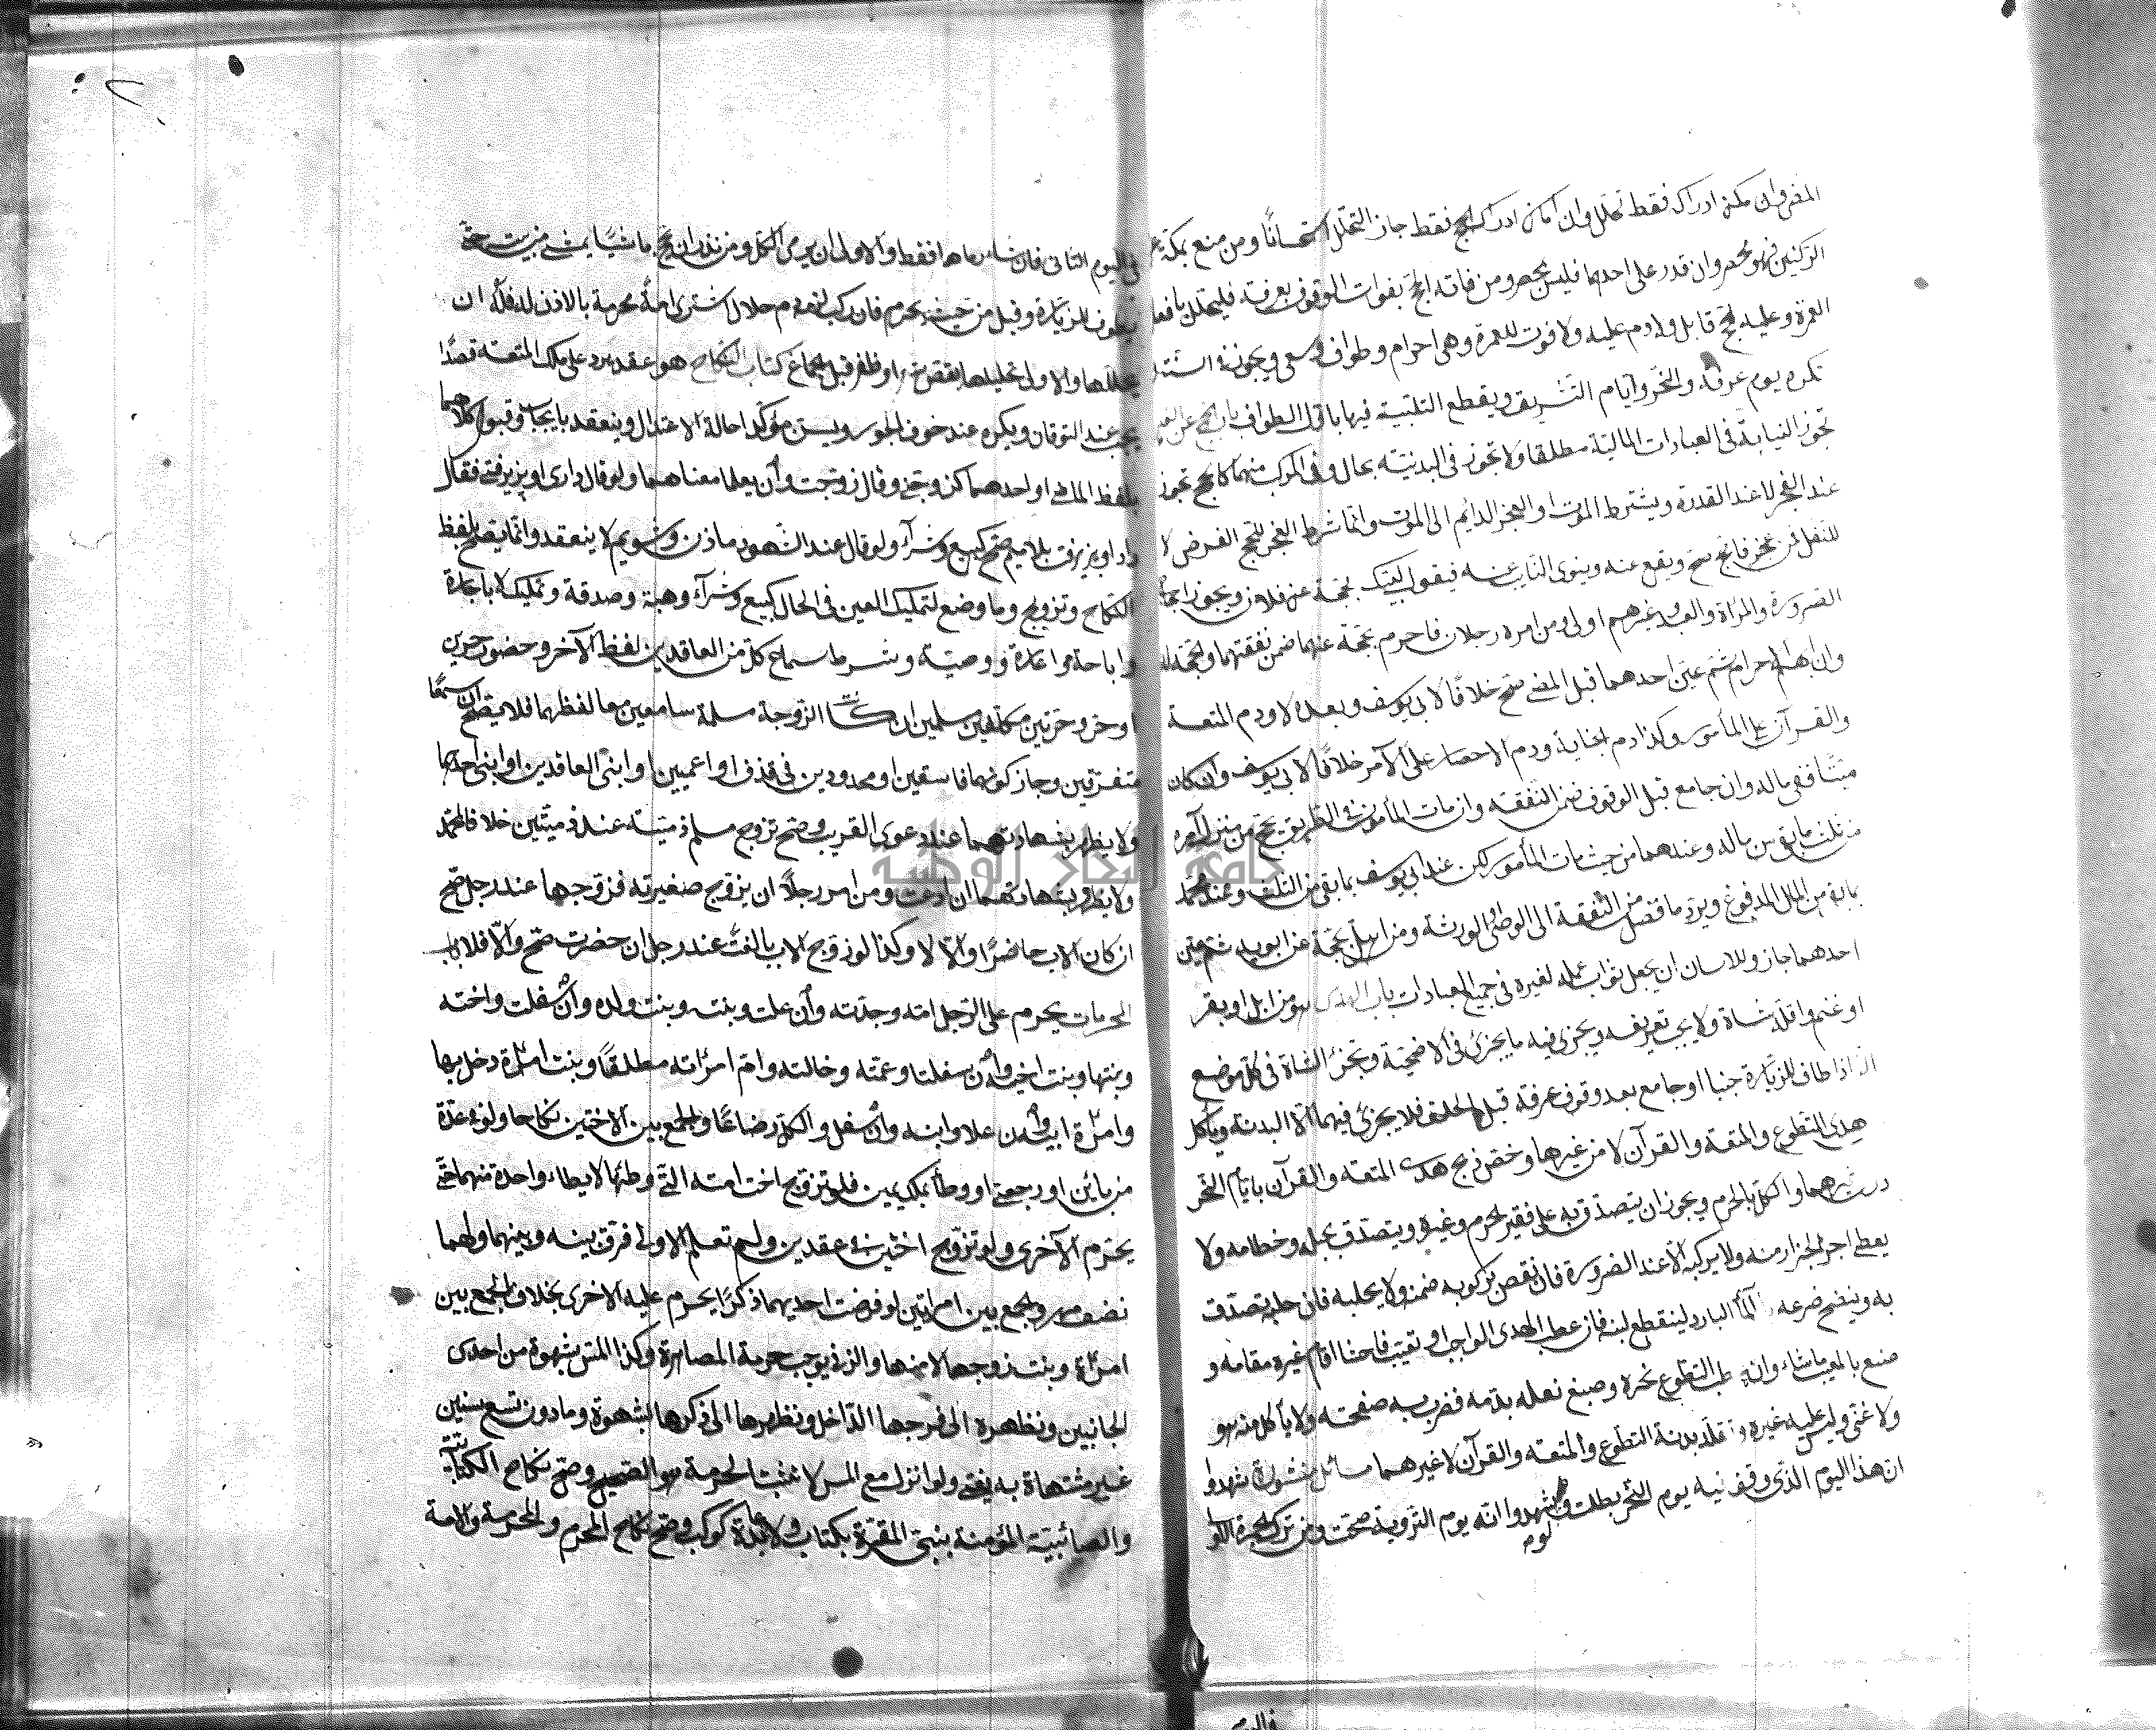 المضي وان امكنه ادراكه فقط تحلل وان امكن ادراك الحج فقط جاز التحلل استحسانًا ومن منع بمكة عن
الركنين فهو محصر وان قدر على احدهما فليس بمحصر ومن فاته الحج بفوات الوقوف بعرفة فليتحلل بافعال
العمرة وعليه الحج من قابل ولا دم عليه ولا فوت للعمرة وهي احرام وطواف وسعي ويجوز في السنة
تكره يوم عرفة والنحر وايام التشريق ويقطع التلبية فيها باول الطواف باب الحج عن الغير
تجوز النيابة في العبادات المالية مطلقا ولا تجوز في البدنية بحال وفي المركب منهما كالحج تجوز
عند العجز لا عند القدرة ويشترط الموت او العجز الدائم الى الموت وانما شرط العجز للحج الفرض لا
للنفل فمن عجز فاحج صح ويقع عنه وينوي النائب عنه فيقول لبيك بحجة عن فلان ويجوز احجاج
الصرورة والمرأة والعبد وغيرهم اولى ومن امره رجلان فاحرم بحجة عنهما ضمن نفقتهما والحجة له
وان ابهم الاحرام ثم عين احدهما قبل المضي صح خلافًا لابي يوسف وبعده لا ودم المتعة
والقرآن على المأمور وكذا دم الجناية ودم الاحصار على الآمر خلافًا لابي يوسف وان كان
ميتًا ففي ماله وان جامع قبل الوقوف ضمن النفقة وان مات المأمور في الطريق يحج من منزل آمره
من ثلث ما بقي من ماله وعندهما من حيث مات المأمور لكن عند ابي يوسف بما بقي من الثلث وعند محمد
بما بقي من المال المدفوع ويرد ما فضل من النفقة الى الوصي او الورثة ومن اهل بحجة عن ابويه ثم عين
احدهما جاز وللانسان ان يجعل ثواب عمله لغيره في جميع العبادات باب الهدي هو من ابل او بقر
او غنم واقله شاة ولا يجب تعريفه ويجزئ فيه ما يجزئ في الاضحية وتجزئ الشاة في كل موضع
الا اذا طاف للزيارة جنبا او جامع بعد وقوف عرفة قبل الحلق فلا يجزئ فيهما الا البدنة ويأكل
هدي التطوع والمتعة والقرآن لا من غيرها وخص ذبح هدي المتعة والقرآن بايام النحر
دون غيرهما والكل بالحرم ويجوز ان يتصدق به على فقير الحرم وغيره ويتصدق بجله وخطامه ولا
يعطى اجر الجزار منه ولا يركبه الا عند الضرورة فان نقص بركوبه ضمنه ولا يحلبه فان حلبه تصدق
به وينضح ضرعه بالمآء البارد لينقطع لبنه فان عطب الهدي الواجب او تعيب فاحشا اقام غيره مقامه و
صنع بالمعيب ماشاء وان عطب التطوع نحره وصبغ نعله بدمه فضرب به صفحته ولا يأكل منه هو
ولا غني وليس عليه غيره وتقلد بدنة التطوع والمتعة والقرآن لا غيرهما مسائل منثورة شهدوا
ان هذا اليوم الذي وقف فيه يوم النحر بطلت ولو شهدوا انه يوم التروية صحت ومن ترك الجمرة الاولى
في اليوم الثاني فان شاء رماها فقط والاولى ان يرمي الكل ومن نذر ان يحج ماشيًا يمشي من بيته حتى
يطوف للزيارة وقيل من حيث يحرم فان ركب لزمه دم حلال اشترى امة محرمة بالاذن له ان
يحللها والاولى تحليلها بقص شعر او ظفر قبل الجماع كتاب النكاح هو عقد يرد على ملك المتعة قصدًا
يجب عند التوقان ويكره عند خوف الجور ويسن مؤكدا حالة الاعتدال وينعقد بايجاب وقبول كلاهما
بلفظ الماضي او احدهما كزوجني وقال زوجت وان لم يعلما معناهما ولو قال دادى او پزيرفتى فقال
داد او پزيرفت بلا ميم صح كبيع وشرآء ولو قال عند الشهود ما زن وشويم لا ينعقد وانما يصح بلفظ
النكاح وتزويج وما وضع لتمليك العين في الحال كبيع وشرآء وهبة وصدقة وتمليك لا باجارة
واباحة واعارة ووصية وشرط سماع كل من العاقدين لفظ الآخر وحضور حرين
او حر وحرتين مكلفين مسلمين ان كانت الزوجة مسلمة سامعين معا لفظهما فلا يصح ان سمعًا
متفرقين وجاز كونهما فاسقين او محدودين في قذف او اعميين او ابني العاقدين او ابني احدهما
ولا يظهر بشهادتهما عند دعوى القريب وصح تزوج مسلم ذمية عند ذميين خلافا لمحمد
ولا يظهر بشهادتهما ان ادعت ومن امر رجلاً ان يزوج صغيرته فزوجها عند رجل صح
ان كان الاب حاضرًا والا لا وكذا لو زوج الاب بالغته عند رجل ان حضرت صح والا فلا باب
المحرمات يحرم على الرجل امه وجدته وان علت وبنته وبنت ولده وان سفلت واخته
وبنتها وبنت اخيه وان سفلتا وعمته وخالته وام امرأته مطلقًا وبنت امرأة دخل بها
وامرأة ابيه وان علا وابنه وان سفل والكل رضاعًا والجمع بين الاختين نكاحا ولو في عدة
من بائن او رجعي او وطأ بملك يمين فلو تزوج اخت امته التي وطئها لا يطاء واحدة منهما حتى
يحرم الآخرى ولو تزوج اختين في عقدين ولم تعلم الاولى فرق بينه وبينهما ولهما
نصف مهر والجمع بين امرأتين لو فرضت احديهما ذكرًا يحرم عليه الاخرى بخلاف الجمع بين
امرأة وبنت زوجها لا منها والزنى يوجب حرمة المصاهرة وكذا المس بشهوة من احدى
الجانبين ونظره الى فرجها الداخل ونظرها الى ذكره بشهوة وما دون تسع سنين
غير مشتهاة به يفتى ولو انزل مع المس لا تثبت الحرمة هو الصحيح وصح نكاح الكتابية
والصابئية المؤمنة بنبي المقرة بكتاب لا عابدة كوكب وصح نكاح المحرم والمحرمة والامة